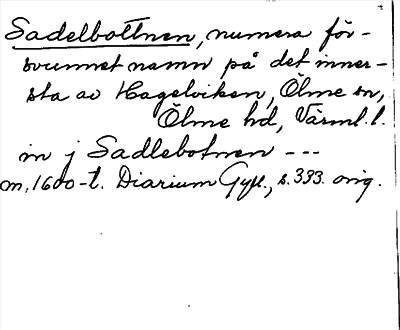 Sadelbottnen, numera för-
svunnet namn på det inner-
sta av Hagelviken, Ölme sn,
Ölme hd, Värml. l.
in j Sadlebotnen ---
m. 1600-t. Diarium Gyll., s. 333. orig.